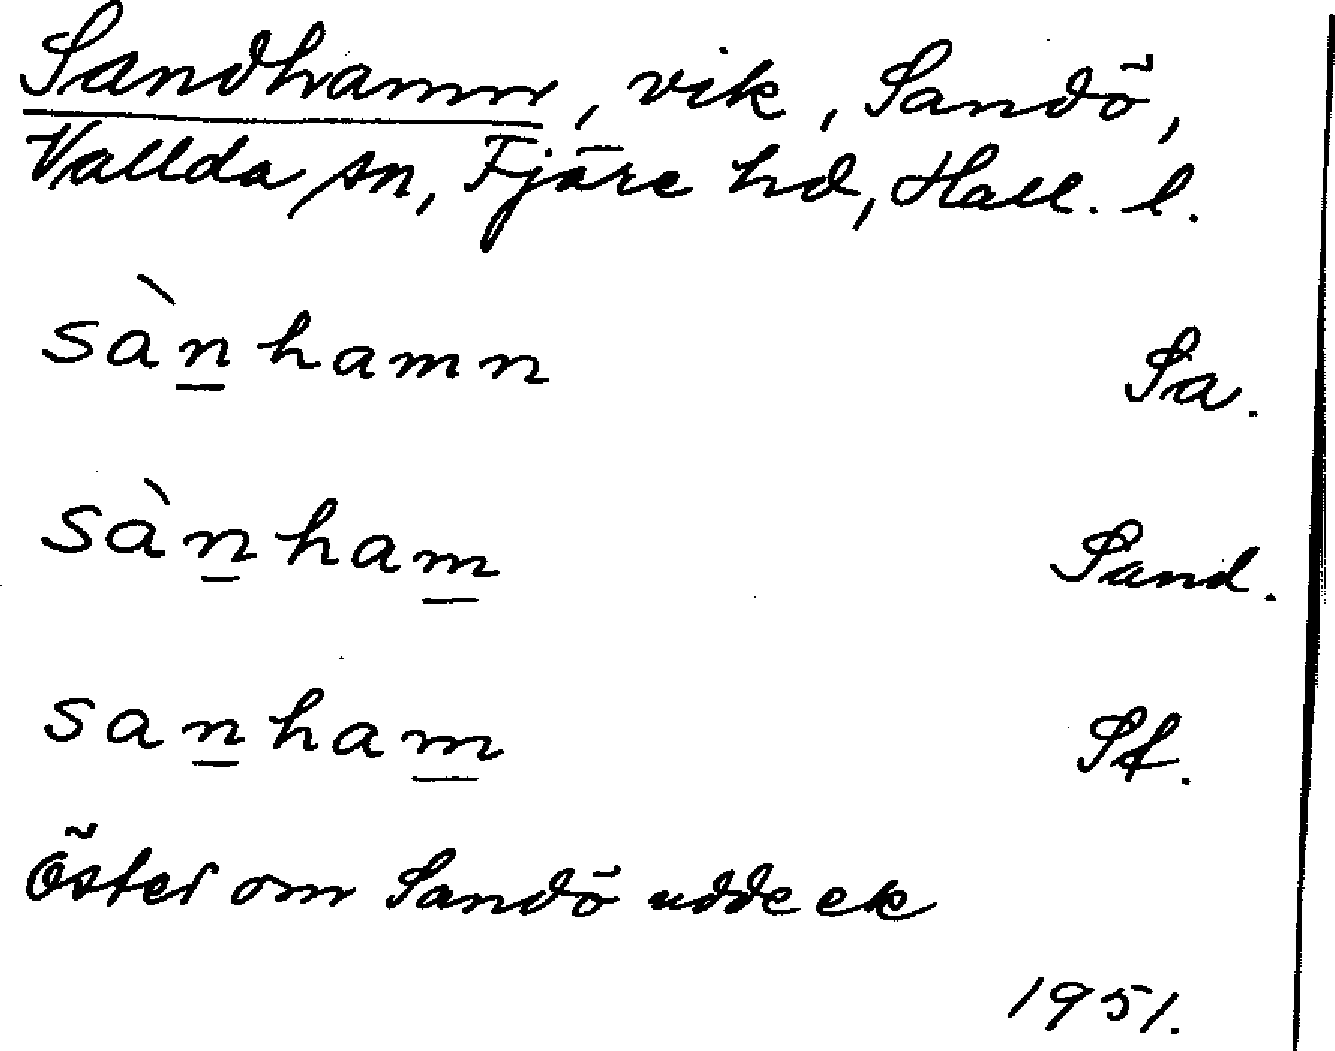 Sandhamn, vik, Sandö,
Vallda sn, Fjäre hd, Hall. l.
sànhamn Sa.
sànham Sand.
sanham Sf.
Öster om Sandö udde
1951.